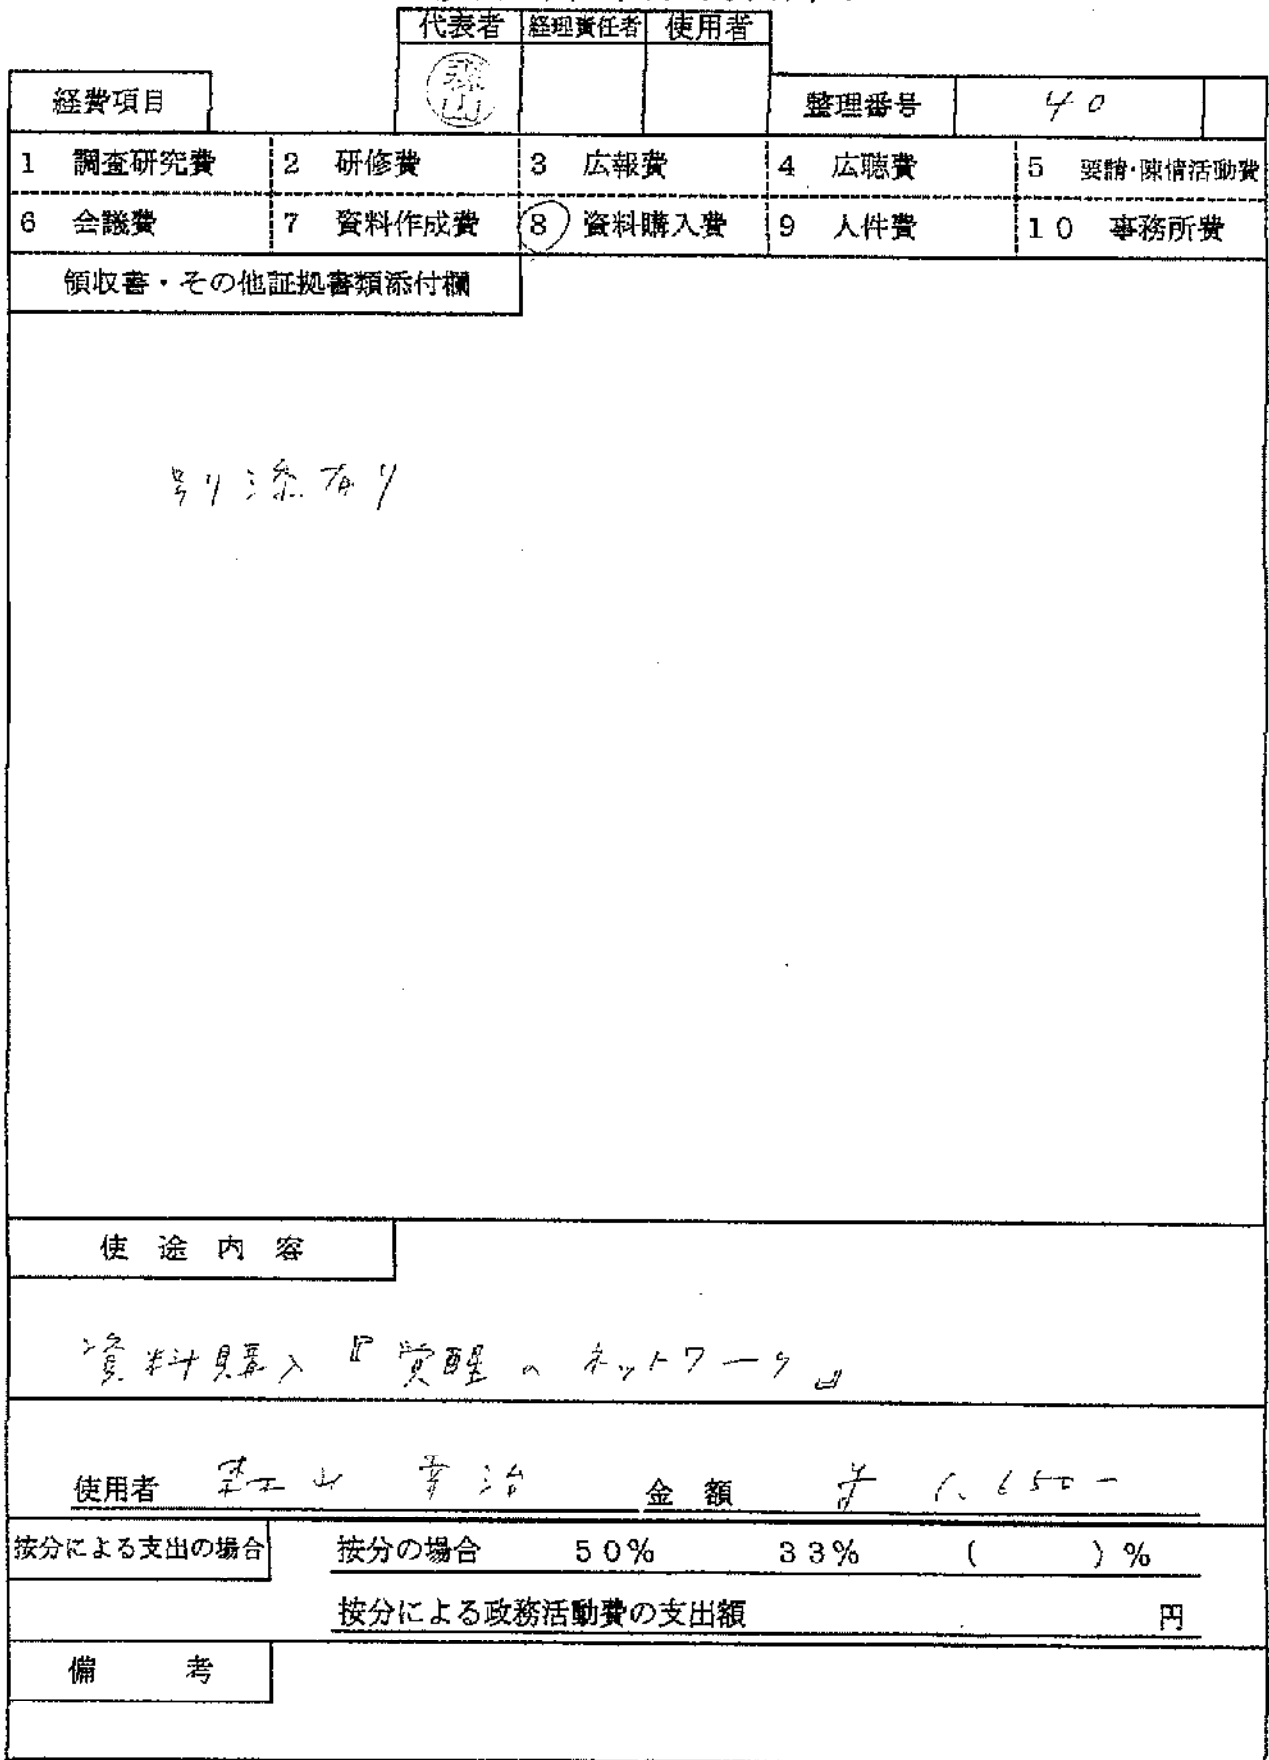 代表者 経理責任者 使用者
経費項目 整理番号 40
1 調査研究費 2 研修費 3 広報費 4 広聴費 5 要請・陳情活動費
6 会議費 7 資料作成費 8 資料購入費 9 人件費 10 事務所費
領収書・その他証拠書類添付欄
別添有り
使途内容
資料購入『覚醒のネットワーク』
使用者 山 幸治 金額 ¥1,650-
按分による支出の場合 按分の場合 50% 33% ( )%
按分による政務活動費の支出額 円
備考